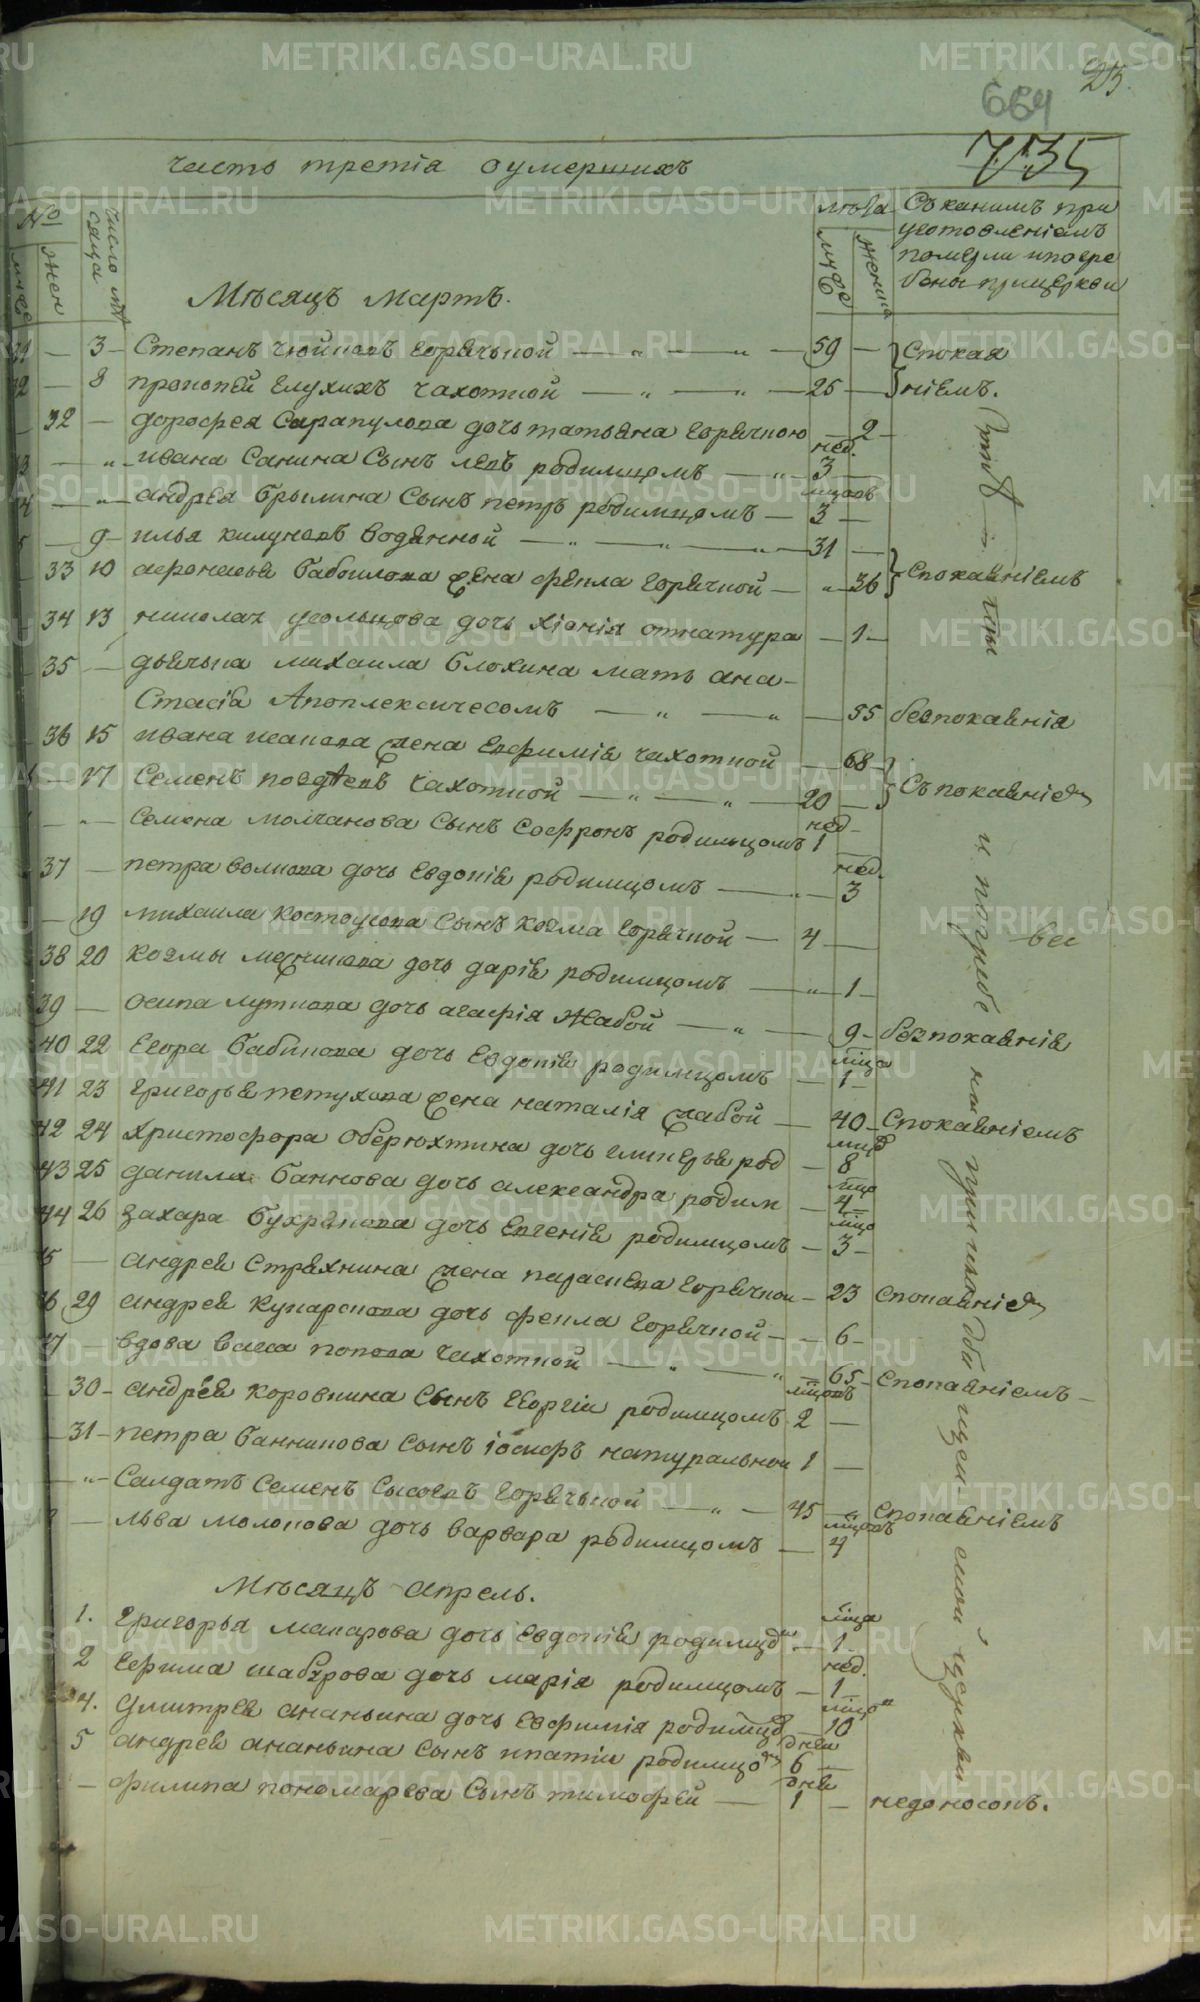 25.
664
735
Часть третія о умершихъ
№
муж
жен
число мѣсяца
лѣта
муже
женска
Съ какимъ при
уготовленіемъ
померли и погре
бены при церкви
Мѣсяцъ Мартъ.
— 3 — Степанъ Горячьной — „ — „ — 59 — Спокая
— 8 Прокопей Глухихъ чахотной — „ — „ — 25 — ніемъ.
32 — дорофея Сарапулова дочь татьяна горячною — 2 —
нед.
— „ — ивана Санина Сынъ левъ родимцомъ — „ — 3 —
мцовъ
— „ — андрея Брылина Сынъ петръ родимцомъ — 3 —
— 9 — илья килуновъ водянной — „ — „ — „ — 31 —
33 10 афонасья бабоилова жена фекла горячной — „ — 36 Спокаяніемъ
34 13 николая усольцова дочь хіонія отнатура — 1 —
35 — дьячька михаила блохина мать ана-
стасія Апоплексичесомъ — „ — „ — 55 безпокаянія
36 15 ивана исакова жена евфимія чахотной — 68 —
— 17 Семенъ чахотной — „ — „ — 20 — Съ покаяніем
нед
— „ — Семена молчанова Сынъ Софронъ родимцомъ 1
нед.
37 — петра волкова дочь Евдокія родимцомъ — „ — 3
— 19 михаила костоусова Сынъ козма горячной — 4 —
38 20 козмы меншикова дочь дарія родимцомъ — „ — 1 —
39 — осипа луткова дочь агафія жабой — „ — 9 — безпокаянія
мца
40 22 Егора бабинова дочь Евдокія родимцомъ — 1 —
41 23 григорья петухова жена наталія жабой — 40 — Спокаяніемъ
мцо
42 24 христофора Оберюхтина дочь гликерья род — 8
мцо
43 25 данила банкова дочь александра родим — 4
мцо
44 26 захара бухрякова дочь Евгенія родимцомъ — 3 —
— андрея Стряхнина жена параскева горячкои — 23 Спокаяніем
29 андрея кунарскова дочь фекла горячной — — 6 —
— вдова васса попова чахотной — „ — „ — 65 — Спокаяніемъ —
мцовъ
— 30 — андрея коровкина Сынъ Георгіи родимцомъ 2 —
— 31 — петра банникова Сынъ іосифъ натуральнои 1 —
— „ — Салдатъ Семенъ Сысоевъ горячьной — „ — 45 — „ Спокаяніемъ
мцовъ
— льва молокова дочь варвара родимцомъ — 4
Мѣсяцъ апрель.
мца
1. григорья макарова дочь Евдокія родимцо — 1
нед.
2 Ефима шабурова дочь марія родимцомъ — 1 —
мцо
4. дмитрея ананьина дочь Евфимія родимцо — 10
днеи
5 андрея ананьина сынъ ипатіи родимцом 6 —
дня
— филипа пономарева Сынъ тимофей — 1 — недоносокъ.
вси
и погребе
ны при
общей
сной церкви